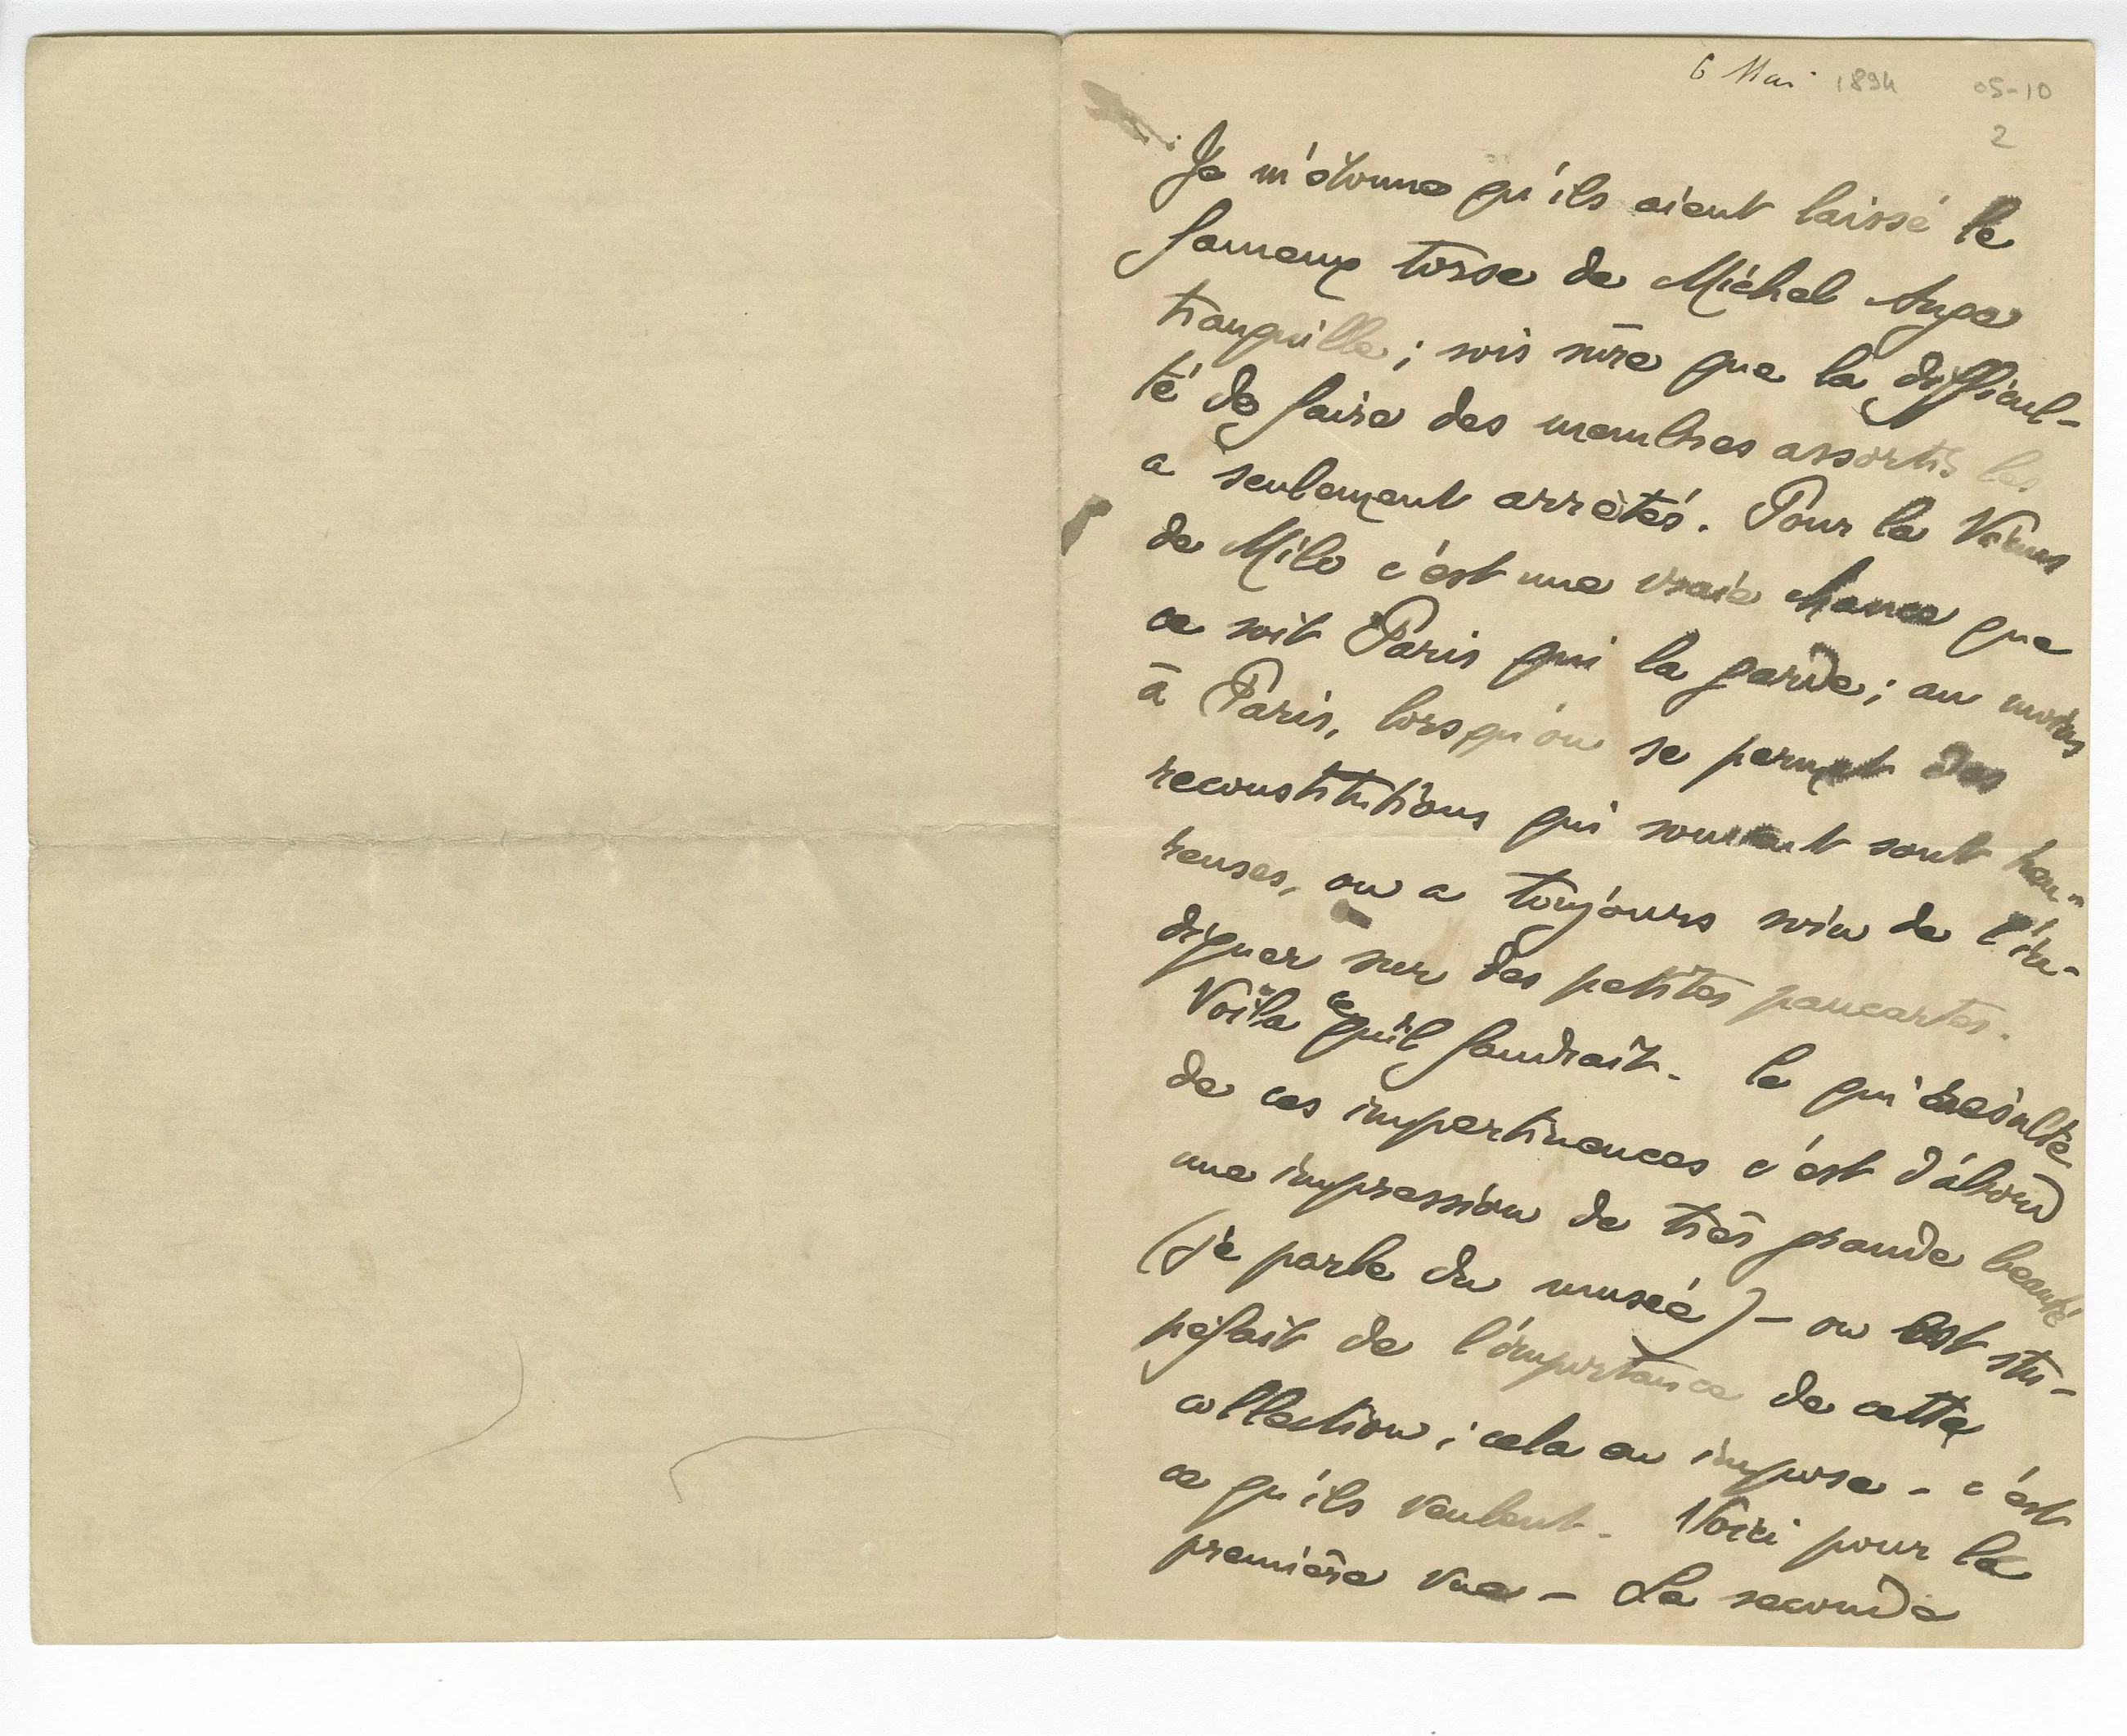 6 Mai 1894 05-10
2
Je m'étonne qu'ils aient laissé le
fameux torse de Michel Ange
tranquille ; sois sûre que la difficul-
té de faire des membres assortis les
a seulement arrêtés. Pour la Vénus
de Milo c'est une vraie chance que
ce soit Paris qui la garde ; au moins
à Paris, lorsqu'on se permet des
reconstitutions qui souvent sont heu-
reuses, on a toujours soin de l'in-
diquer sur des petites pancartes.
Voilà ce qu'il faudrait. Ce qui résulte
de ces impertinences c'est d'abord
une impression de très grande beauté
(je parle du musée) – on est stu-
péfait de l'importance de cette
collection ; cela en impose – c'est
ce qu'ils veulent. Voici pour la
première vue – La seconde